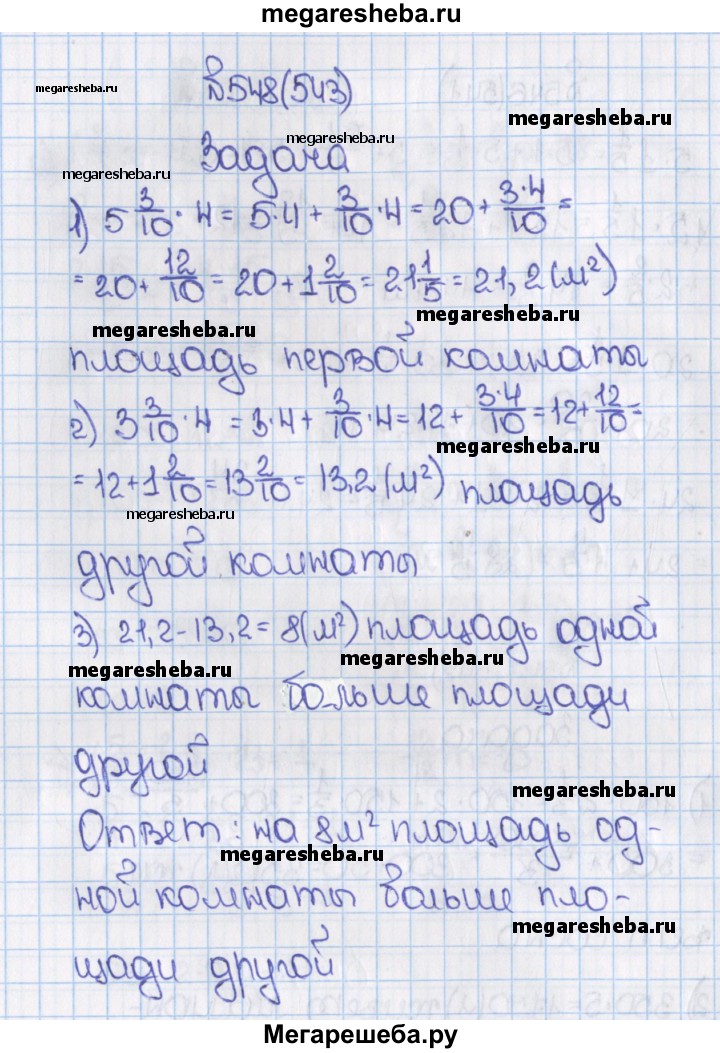 megaresheba.ru
№548(543)
megaresheba.ru
megaresheba.ru
megaresheba.ru
Задача
megaresheba.ru
1) 5 3/10 · 4 = 5·4 + 3/10 · 4 = 20 + 3·4/10 =
= 20 + 12/10 = 20 + 1 2/10 = 21 1/5 = 21,2 (м²)
megaresheba.ru
megaresheba.ru
площадь первой комнаты
2) 3 3/10 · 4 = 3·4 + 3/10 · 4 = 12 + 3·4/10 = 12 + 12/10 =
megaresheba.ru
= 12 + 1 2/10 = 13 2/10 = 13,2 (м²) площадь
megaresheba.ru
другой комнаты
3) 21,2 - 13,2 = 8 (м²) площадь одной
megaresheba.ru
megaresheba.ru
комнаты больше площади
другой
megaresheba.ru
Ответ: на 8 м² площадь од-
megaresheba.ru
ной комнаты больше пло-
megaresheba.ru
щади другой
Мегарешеба.ру